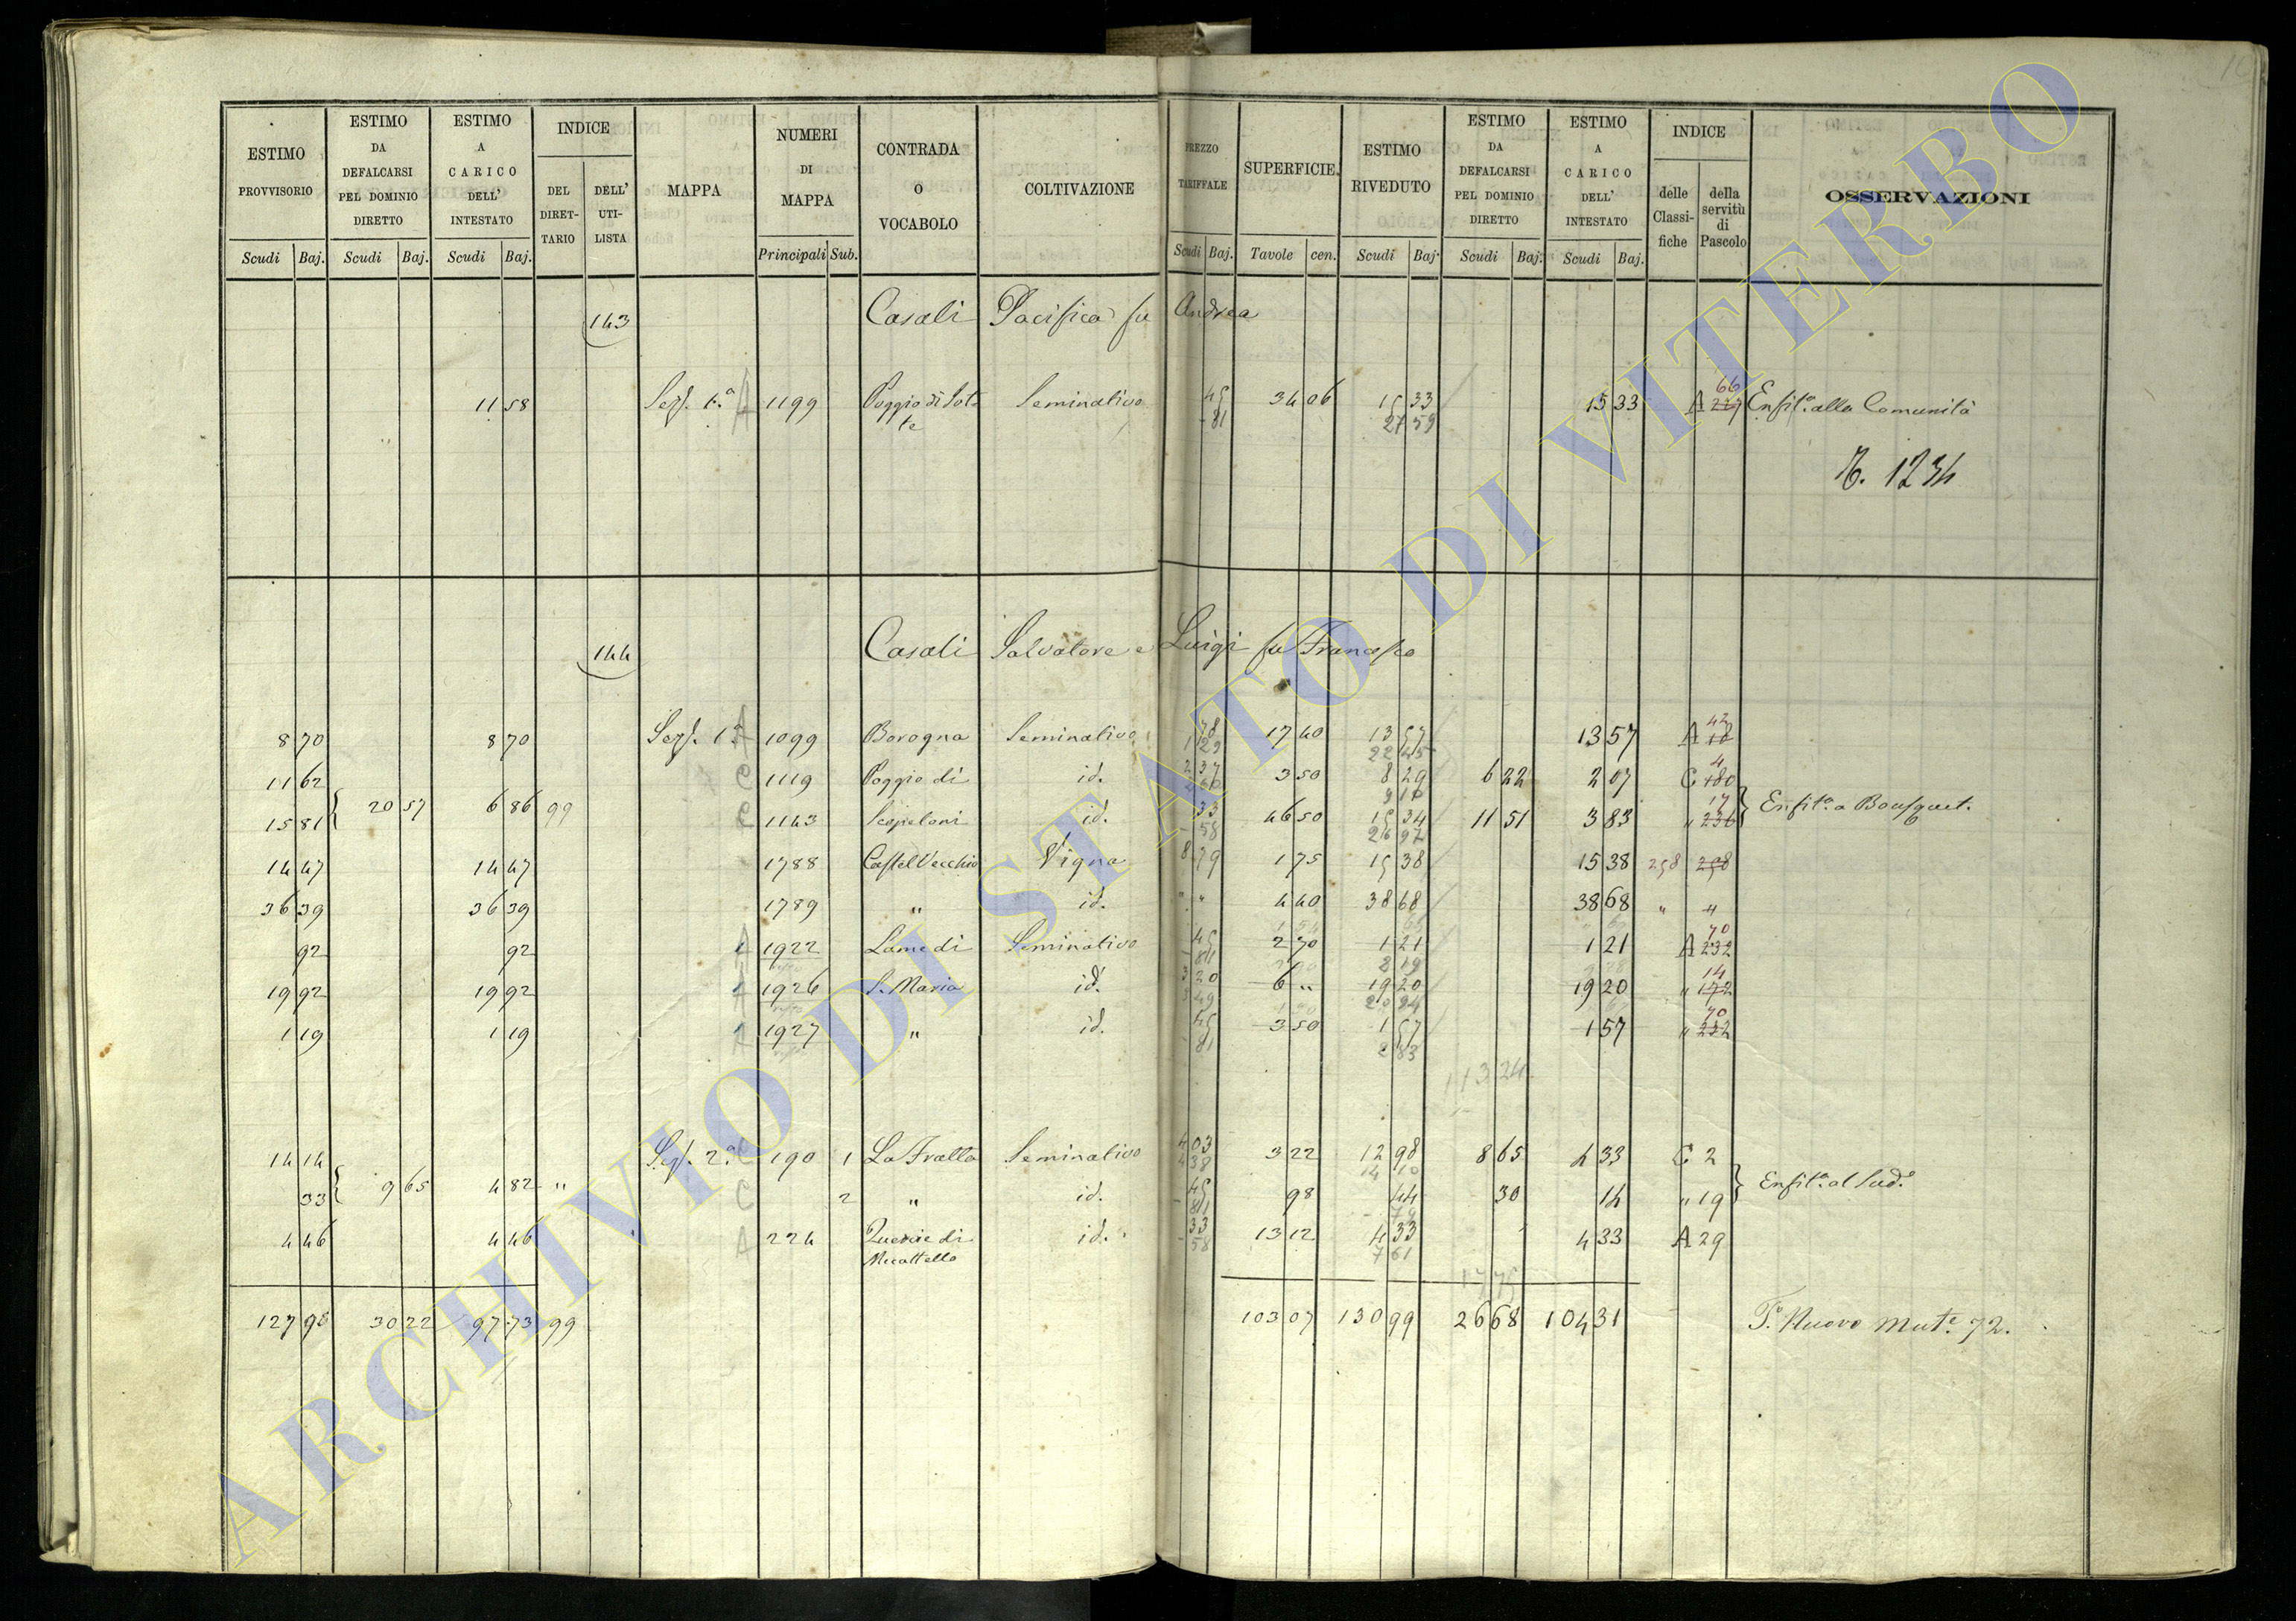 ESTIMO PROVVISORIO
ESTIMO DA DEFALCARSI PEL DOMINIO DIRETTO
ESTIMO A CARICO DELL' INTESTATO
INDICE
DEL DIRET-TARIO
DELL' UTI-LISTA
MAPPA
NUMERI DI MAPPA
CONTRADA O VOCABOLO
COLTIVAZIONE
PREZZO TARIFFALE
SUPERFICIE
ESTIMO RIVEDUTO
ESTIMO DA DEFALCARSI PEL DOMINIO DIRETTO
ESTIMO A CARICO DELL' INTESTATO
INDICE
delle Classi-fiche
della servitù di Pascolo
OSSERVAZIONI
Scudi Baj. Scudi Baj. Scudi Baj. Principali Sub. Scudi Baj. Tavole cen. Scudi Baj. Scudi Baj. Scudi Baj.
143 Casali Pacifica fu Andrea
11 58 Sez. 1.a A 1199 Poggio di Sotte Seminativo 45 34 06 15 33 15 33 A 227 66 Enfit.a alla Comunità
81 27 59
T. 1234
144 Casali Salvatore e Luigi fu Francesco
8 70 8 70 Sez. 1.a A 1099 Borogna Seminativo 78 17 40 13 57 13 57 A 18 42
1 29 22 45
11 62 C 1119 Poggio di id. 2 37 3 50 8 29 6 22 2 07 C 180 4
2 60 9 10
15 81 20 57 6 86 99 C 1143 Scopeloni id. 33 46 50 15 34 11 51 3 83 " 236 17 Enfit.a a Bousquet.
58 26 97
14 47 14 47 1788 Castel Vecchio Vigna 8 79 1 75 15 38 15 38 258 258
36 39 36 39 1789 " id. " " 4 40 38 68 38 68 " "
92 92 A 1922 Lame di Seminativo 45 2 70 1 21 1 21 A 232 70
81 2 19
19 92 19 92 A 1926 S. Maria id. 3 20 6 " 19 20 19 20 " 172 14
3 49 20 94
1 19 1 19 A 1927 " id. 45 3 50 1 57 1 57 " 232 70
81 2 83
113 24
14 14 Sez. 2.a C 190 1 La Fratta Seminativo 4 03 3 22 12 98 8 65 4 33 C 2
4 38 14 10
33 9 65 4 82 " C 2 " id. 45 98 44 30 14 " 19 Enfit.a al Sud.o
81 79
4 46 4 46 A 224 Quercie di Mecattello id. 33 13 12 4 33 4 33 A 29
58 7 61
17 75
127 98 30 22 97 73 99 103 07 130 99 26 68 104 31 T.o Nuovo Mut.e 72.
ARCHIVIO DI STATO DI VITERBO